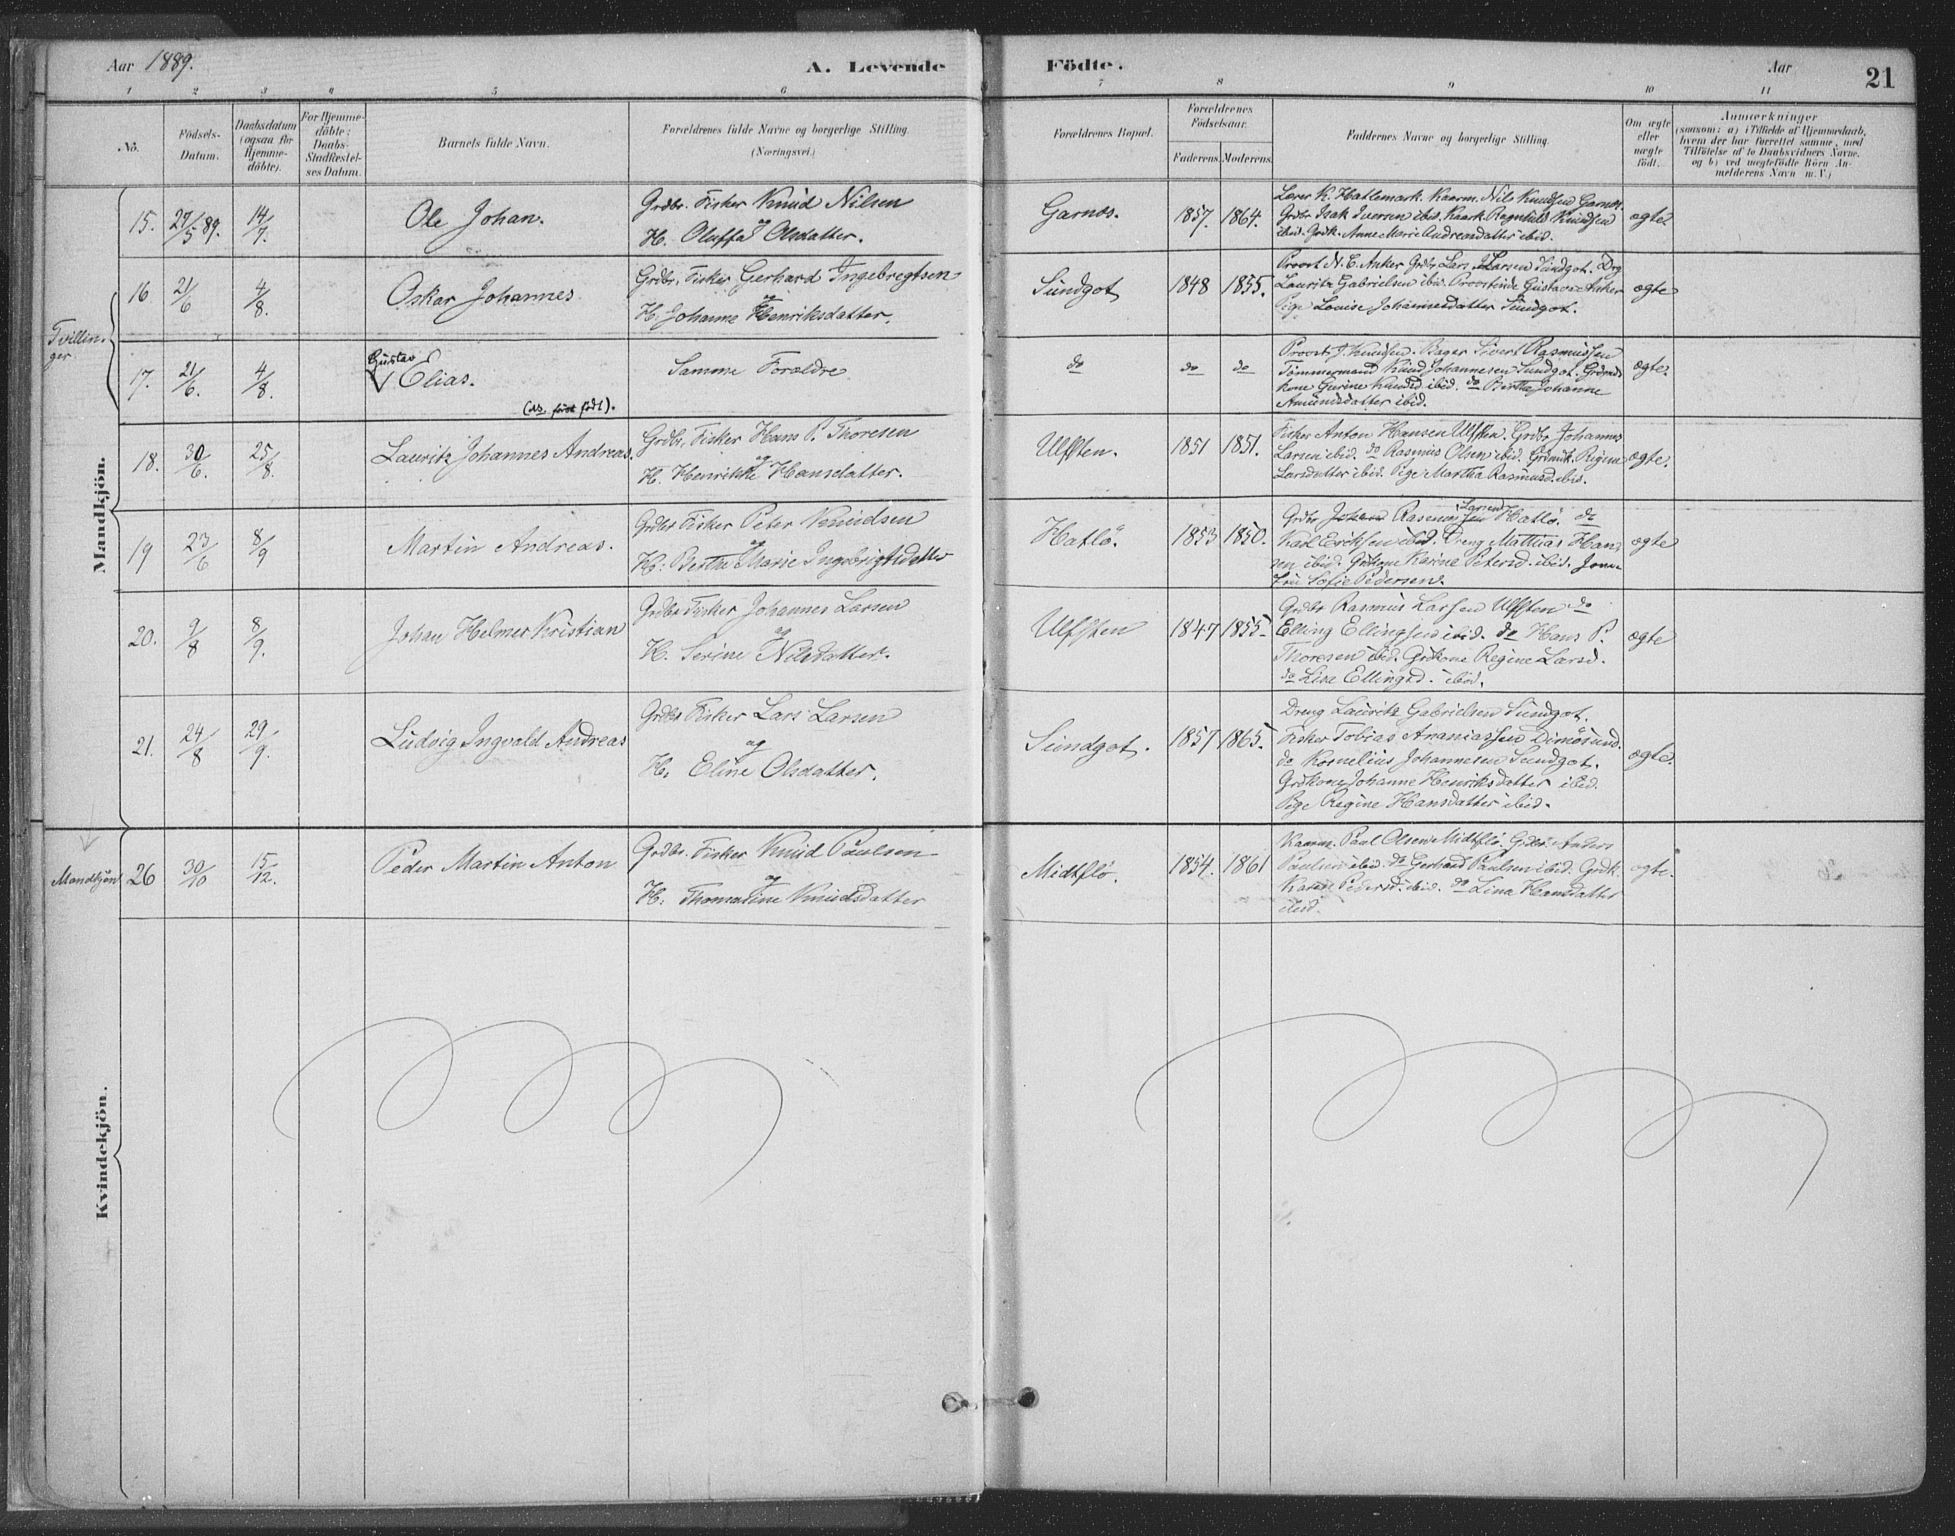 Aar 1889.
A. Levende Födte.
Aar
21
1 2 3 4 5 6 7 8 9 10 11
No.
Födsels-Datum.
Daabsdatum (ogsaa for Hjemme-döbte).
For Hjemme-döbte: Daabs-Stadfæstel-ses Datum.
Barnets fulde Navn.
Forældrenes fulde Navne og borgerlige Stilling. (Næringsvei.)
Forældrenes Bopæl.
Forældrenes Födselsaar.
Faderens. Moderens.
Faddernes Navne og borgerlige Stilling.
Om ægte eller uægte födt.
Anmærkninger
(saasom: a) i Tilfælde af Hjemmedaab,
hvem der har forrettet samme, med
Tilföielse af to Daabsvidners Navne,
og b) ved uegtefödte Börn An-
melderens Navn m. V.)
Mandkjön.
15. 27/5 89. 14/7. Ole Johan.
Grdbr. Fisker Knud Nilsen
og
H. Oluffa Olsdatter.
Garnes. 1857. 1864.
Lærer K. Hatlemark. Kaarm. Nils Knudsen Garnes.
Grdbr Isak Iversen ibid. Kaark. Ragnhild Knudsen
ibid. Grdk. Anne Marie Andreasdatter ibid.
ægte.
Tvillin-
ger
16 21/6 4/8. Oskar Johannes
Grdbr. Fisker Gerhard Ingebregtsen
og
H. Johanne Henriksdatter.
Sundgot 1848 1855.
Provst N. C. Anker Grdbr. Lars J. Larsen Sundgot. Drg
Lauritz Gabrielsen ibid. Provstinde Gustava Anker
Pige Louise Johannesdatter Sundgot.
ægte
17. 21/6. 4/8. Gustav
Elias.
(NB. först födt).
Samme Forældre
do do do
Provst J. Knudsen. Bager Sivert Rasmussen
Tömmermand Knud Johannesen Sundgot. Grdmd-
kone Gurine Knudsd ibid. do Berthe Johanne
Amundsdatter ibid.
ægte.
18. 30/6. 25/8. Lauritz Johannes Andreas.
Grdbr. Fisker Hans P. Thoresen
og
H. Henrikke Hansdatter.
Ulfsten. 1851 1851.
Fisker Anton Hansen Ulfsten. Grdbr Johannes
Larsen ibid. do Rasmus Olsen ibid. Grdmdk. Regine
Larsdatter ibid. Pige Martha Rasmusd. ibid.
ægte.
19 23/6 8/9 Martin Andreas.
Grdbr Fisker Peter Knudsen
og
H. Berthe Marie Ingebrigtsdatter
Hatlö. 1853 1850.
Grdbr Johan Rasmus Larsen Hatlö. do
Karl Eriksen ibid. Dreng Mathias Han-
sen ibid. Grdkone Karine Petersd. ibid. Jom-
fru Sofie Pedersen.
ægte
20. 9/8 8/9. Johan Helmer Kristian
Grdbr Fisker Johannes Larsen
og
H. Serine Nilsdatter.
Ulfsten 1847 1855.
Grdbr Rasmus Larsen Ulfsten do
Elling Ellingsen ibid. do Hans P.
Thoresen ibid. Grdkone Regine Larsd.
do Lisa Ellingsd. ibid.
ægte
21. 24/8 29/9. Ludvig Ingvald Andreas
Grdbr Fisker Lars Larsen
og
H. Eline Olsdatter.
Sundgot. 1857 1865.
Dreng Lauritz Gabrielsen Sundgot.
Fisker Tobias Ananiassen Dimösund.
do Kornelius Johannesen Sundgot.
Grdkone Johanne Henriksdatter ibid.
Pige Regine Hansdatter ibid.
ægte.
Mandkjön
26 30/10 15/12. Peder Martin Anton
Grdbr. Fisker Knud Paulsen
og
H. Thomasine Knudsdatter
Midtflö. 1854. 1861
Kaarm. Paul Olsen Midtflö. Gdbr. Anders
Paulsen ibid. do Gerhard Paulsen ibid. Grdk.
Karen Petersd. ibid. do Lina Hansdatter
ibid.
ægte.
Kvindekjön.